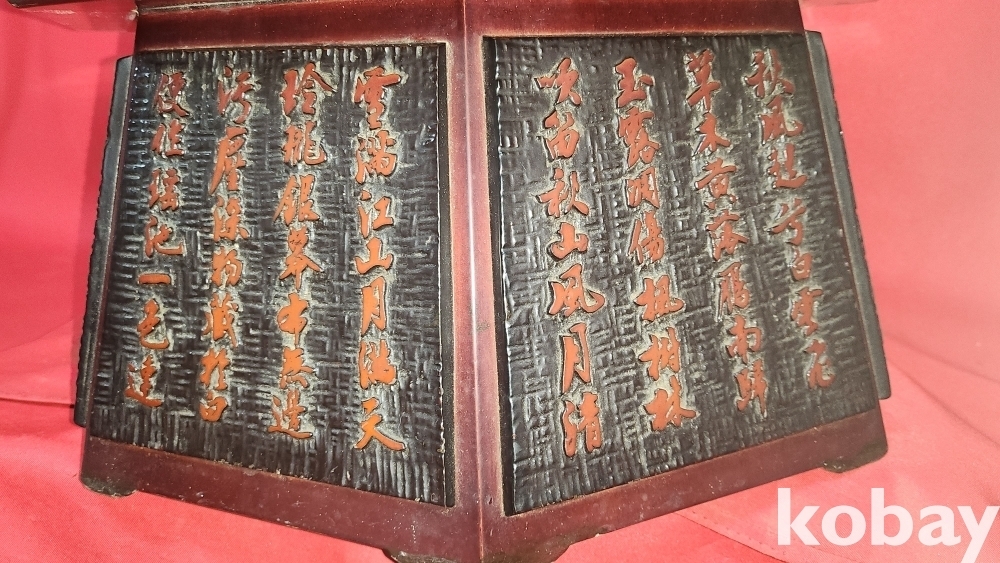 秋風起兮白雲飛
草木黃落雁南歸
玉露凋傷楓樹林
吹笛秋山風月清
雪滿江山月滿天
玲瓏銀界本無邊
污塵染物藏於白
便作瑤池一色連
kobay